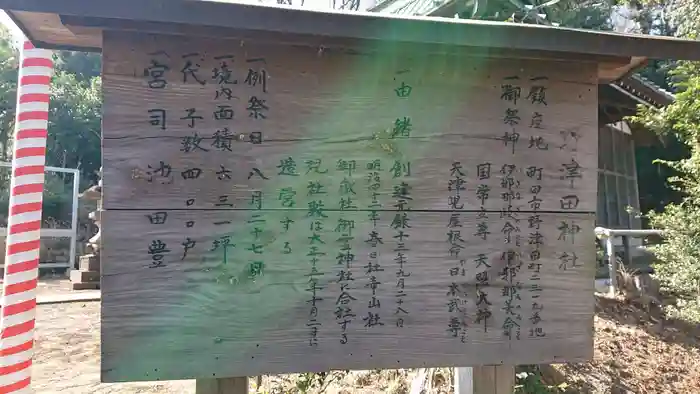 野津田神社
一鎮座地 町田市野津田町二三一九番地
一御祭神 伊邪那岐命 伊邪那美命
国常立尊 天照大神
天津児屋根命 日本武尊
一由緒 創建元録十三年九月二十八日
明治四十二年 春日社 帝山社
御嶽社 御霊神社に合社する
現社殿は大正十五年十月二十日に
造営する
一例祭日 八月二十七日
一境内面積 六三一坪
一代 子数 四〇〇戸
一宮司 池田豊